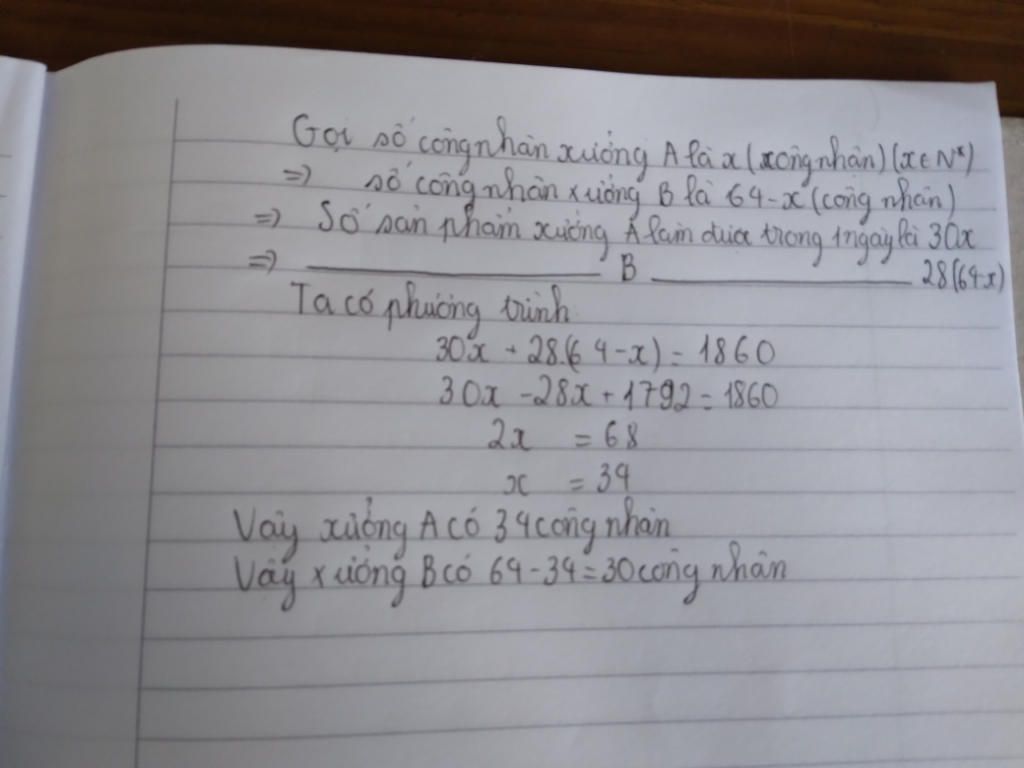 Gọi số công nhân xưởng A là x (công nhân) (x ∈ N*)
=> số công nhân xưởng B là 64-x (công nhân)
=> Số sản phẩm xưởng A làm được trong 1 ngày là 30x
=> ____________ B ____________ 28(64-x)
Ta có phương trình
30x + 28.(64-x) = 1860
30x - 28x + 1792 = 1860
2x = 68
x = 34
Vậy xưởng A có 34 công nhân
Vậy xưởng B có 64-34 = 30 công nhân